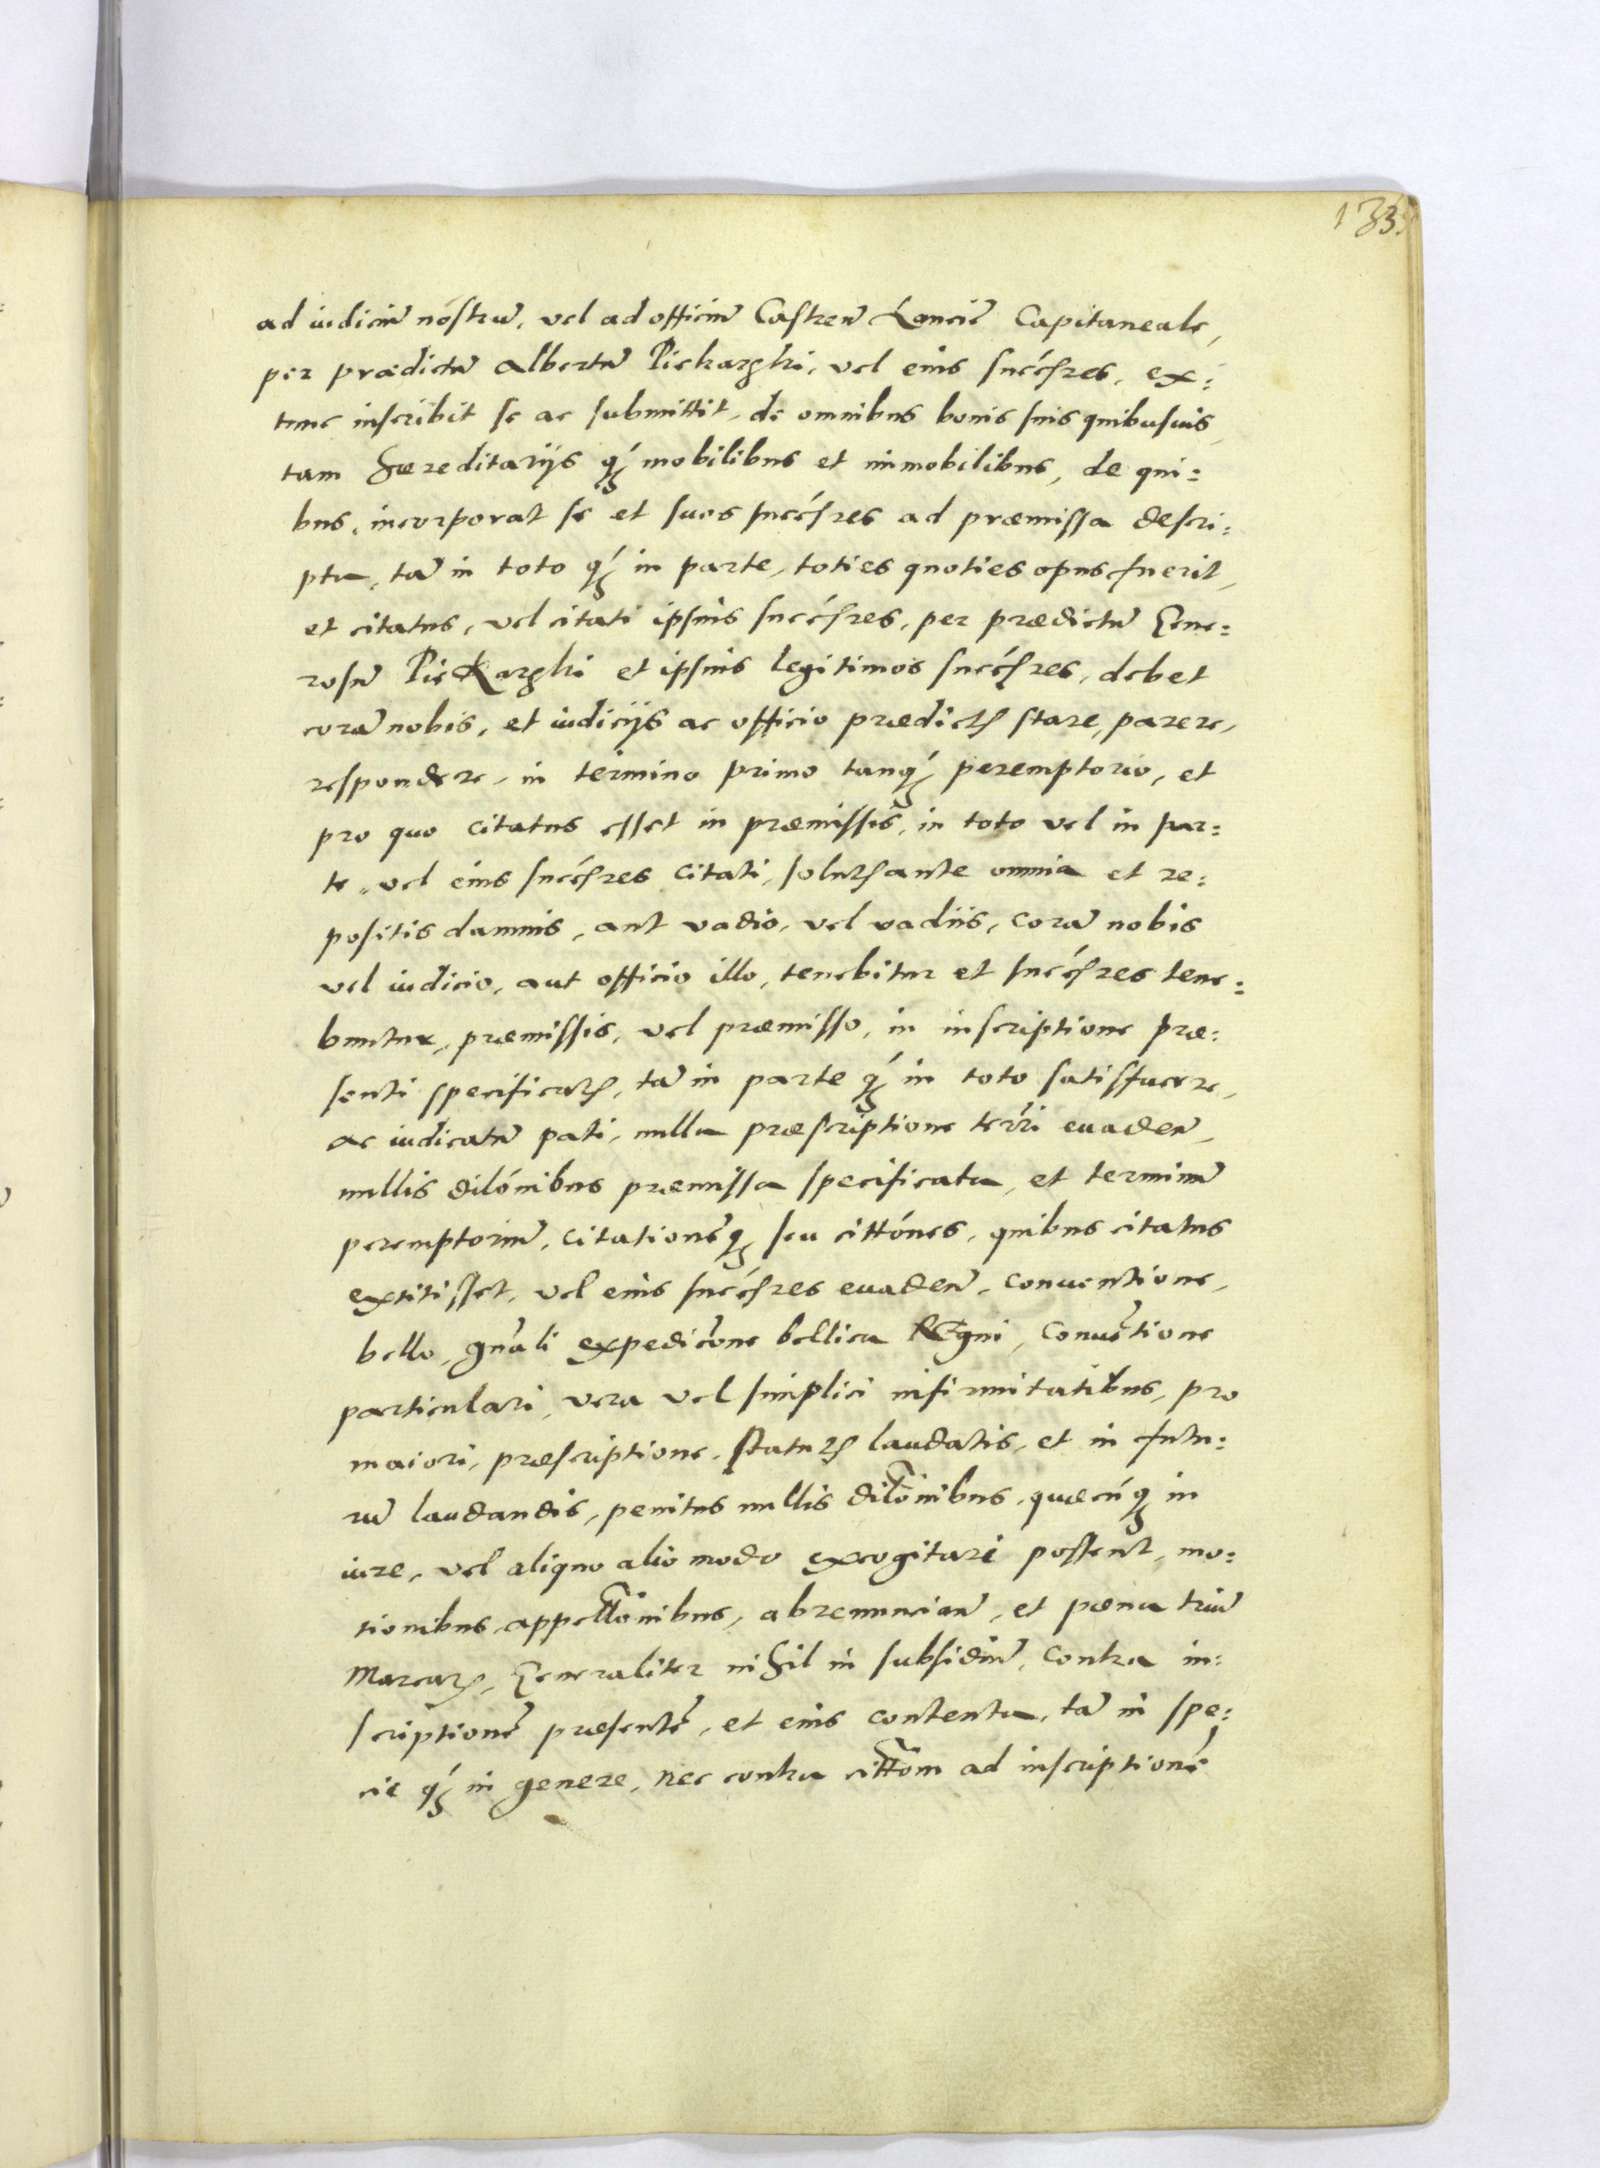 133
ad iudiciu᷈ nostru᷈, vel ad officiu᷈ Castren᷈ Lancic᷈ Capitaneale,
per prædictu᷈ Albertu᷈ Piekarski, vel eius succ̄sres, ex:
tunc inscribit se ac submittit, de omnibus bonis suis quibusuis,
tam hæreditarijs q́ȝ mobilibus et immobilibus, de qui:
bus, incorporat se et suos succ̄sres ad præmissa descri:
pta, ta᷈ in toto q́ȝ in parte, toties quoties opus fuerit,
et citatus, vel citati ipsius succ̄sres, per prædictu᷈ Gene:
rosu᷈ Piekarski et ipsius legitimos succ̄sres, debet
cora᷈ nobis, et iudicijs ac officio prædictꝭ stare, parere,
respondere, in termino primo tanq́ȝ peremptorio, et
pro quo citatus esset in præmissis, in toto vel in par:
te, vel eius succ̄sres citati, solutꝭ ante omnia et re:
positis damnis, aut vadio, vel vadiis, cora᷈ nobis
vel iudicio, aut officio illo, tenebitur et succ̄sres tene:
buntur, præmissis, vel præmisso, in inscriptione præ:
senti specificatꝭ, ta᷈ in parte q́ȝ in toto satisfacere,
ac iudicatu᷈ pati, nulla præscriptione terrī euaden᷈,
nullis dilónibus præmissa specificata, et terminu᷈
peremptoriu᷈, citatione᷈qȝ seu cittónes, quibus citatus
extitisset, vel eius succ̄sres euaden᷈, conuentione,
bello, gn᷈ali expedic᷈one bellica Regni, conue᷈tione
particulari, vera vel simplici infirmitatibus, pro
maiori, præscriptione, statutꝭ laudatis, et in futu:
ru᷈ laudandis, penitus nullis dilo᷈nibus, quæcu᷈qȝ in
iure, vel aliquo alio modo excogitari possent, mo:
tionibus, appello᷈nibus, abrenuncian᷈, et pæna triu᷈
Marcarꝭ, Generaliter nihil in subsidiu᷈, contra in:
scriptione᷈ præsente᷈, et eius contenta, ta᷈ in spe:
cie q́ȝ in genere, nec contra citto᷈m ad inscriptione᷈